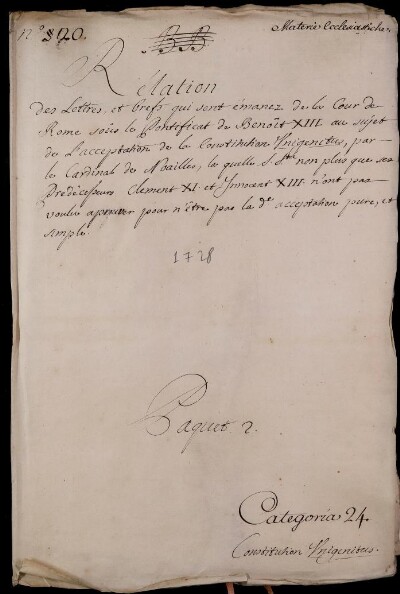 n.° 820.
Materie Ecclesiastiche.
Relation
des Lettres, et brefs qui sont émanez de la Cour de
Rome sous le Pontificat de Benoît XIII au sujet
de l'acceptation de la Constitution Unigenitus, par
le Cardinal de Noailles, la quelle S. Sté non plus que ses
Predecesseurs Clement XI. et Innocent XIII n'ont pas
voulu aprouver pour n'être pas la de acceptation pure, et
simple.
1728
Paquet 2.
Categoria 24.
Constitution Unigenitus.